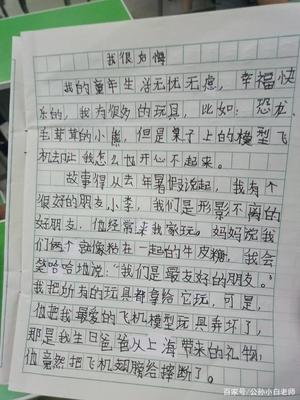 我很后悔
我的童年生活无忧无虑，幸福快
乐的，我有很多的玩具，比如：恐龙、
毛茸茸的小熊，但是桌子上的模型飞
机却让我怎么也开心不起来。
故事得从去年暑假说起，我有个
很好的朋友小李，我们是形影不离的
好朋友，他经常来我家玩。妈妈说我
们俩个就像粘在一起的牛皮糖，我会
笑哈哈地说：“我们是最友好的朋友。”
我把所有的玩具都拿给它玩，可是，
他把我最爱的飞机模型玩具弄坏了，
那是我生日爸爸从上海带来的礼物，
他竟然把飞机翅膀给摔断了。
百家号/公孙小白老师